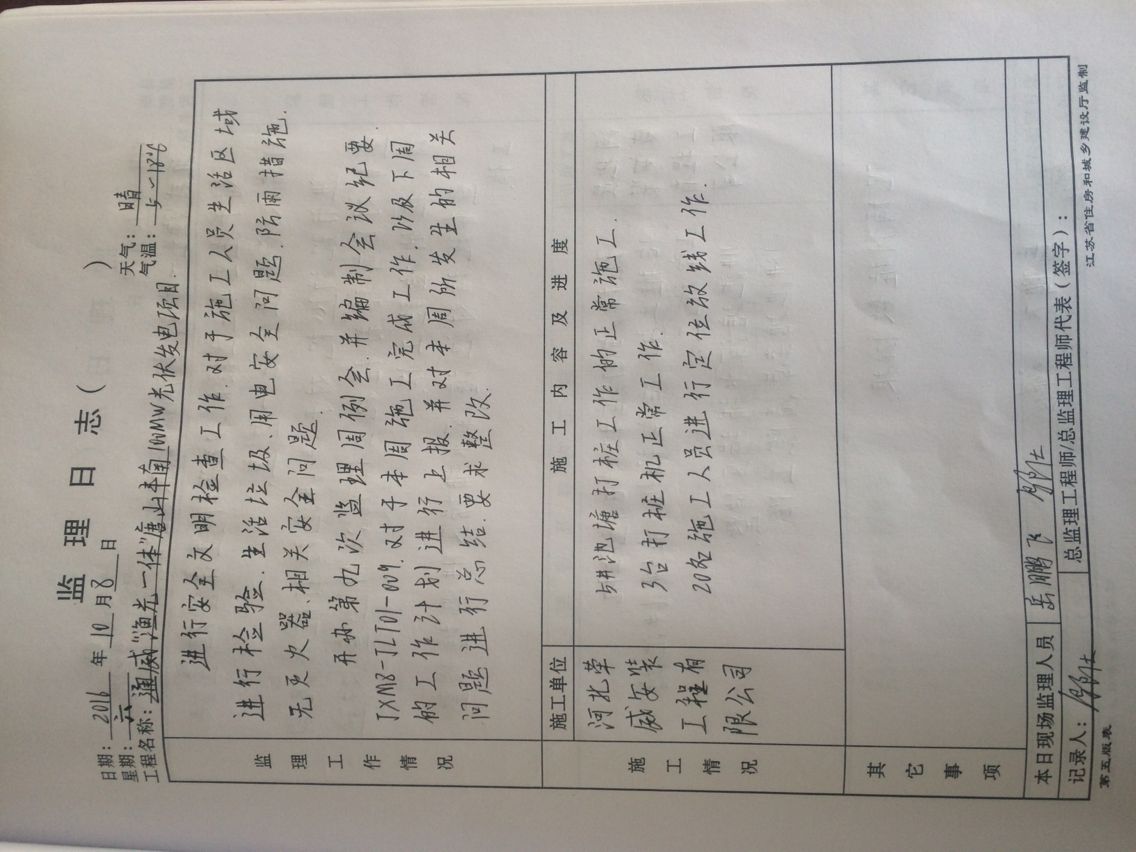 监理日志（ ）
日期：2016年10月8日
天气：晴
星期：六
气温：5~18℃
工程名称：通威"渔光一体"唐山丰南10MW光伏发电项目.
监理工作情况
进行安全文明检查工作.对于施工人员生活区域
进行检验.生活垃圾、用电安全问题.防雨措施.
无灭火器、相关安全问题.
开办第九次监理周例会.并编制会议纪要.
JXMB-JLT01-009.对于本周施工完成工作.以及下周
的工作计划进行上报.并对本周所发生的相关
问题进行总结.要求整改.
施工情况
施工单位
施工内容及进度
河北荣
威安装
工程有
限公司
5#池塘打桩工作的正常施工.
3台打桩机正常工作.
20名施工人员进行定位放线工作.
其它事项
本日现场监理人员 岳鹏飞
记录人：
总监理工程师/总监理工程师代表（签字）：
第五版表
江苏省住房和城乡建设厅监制